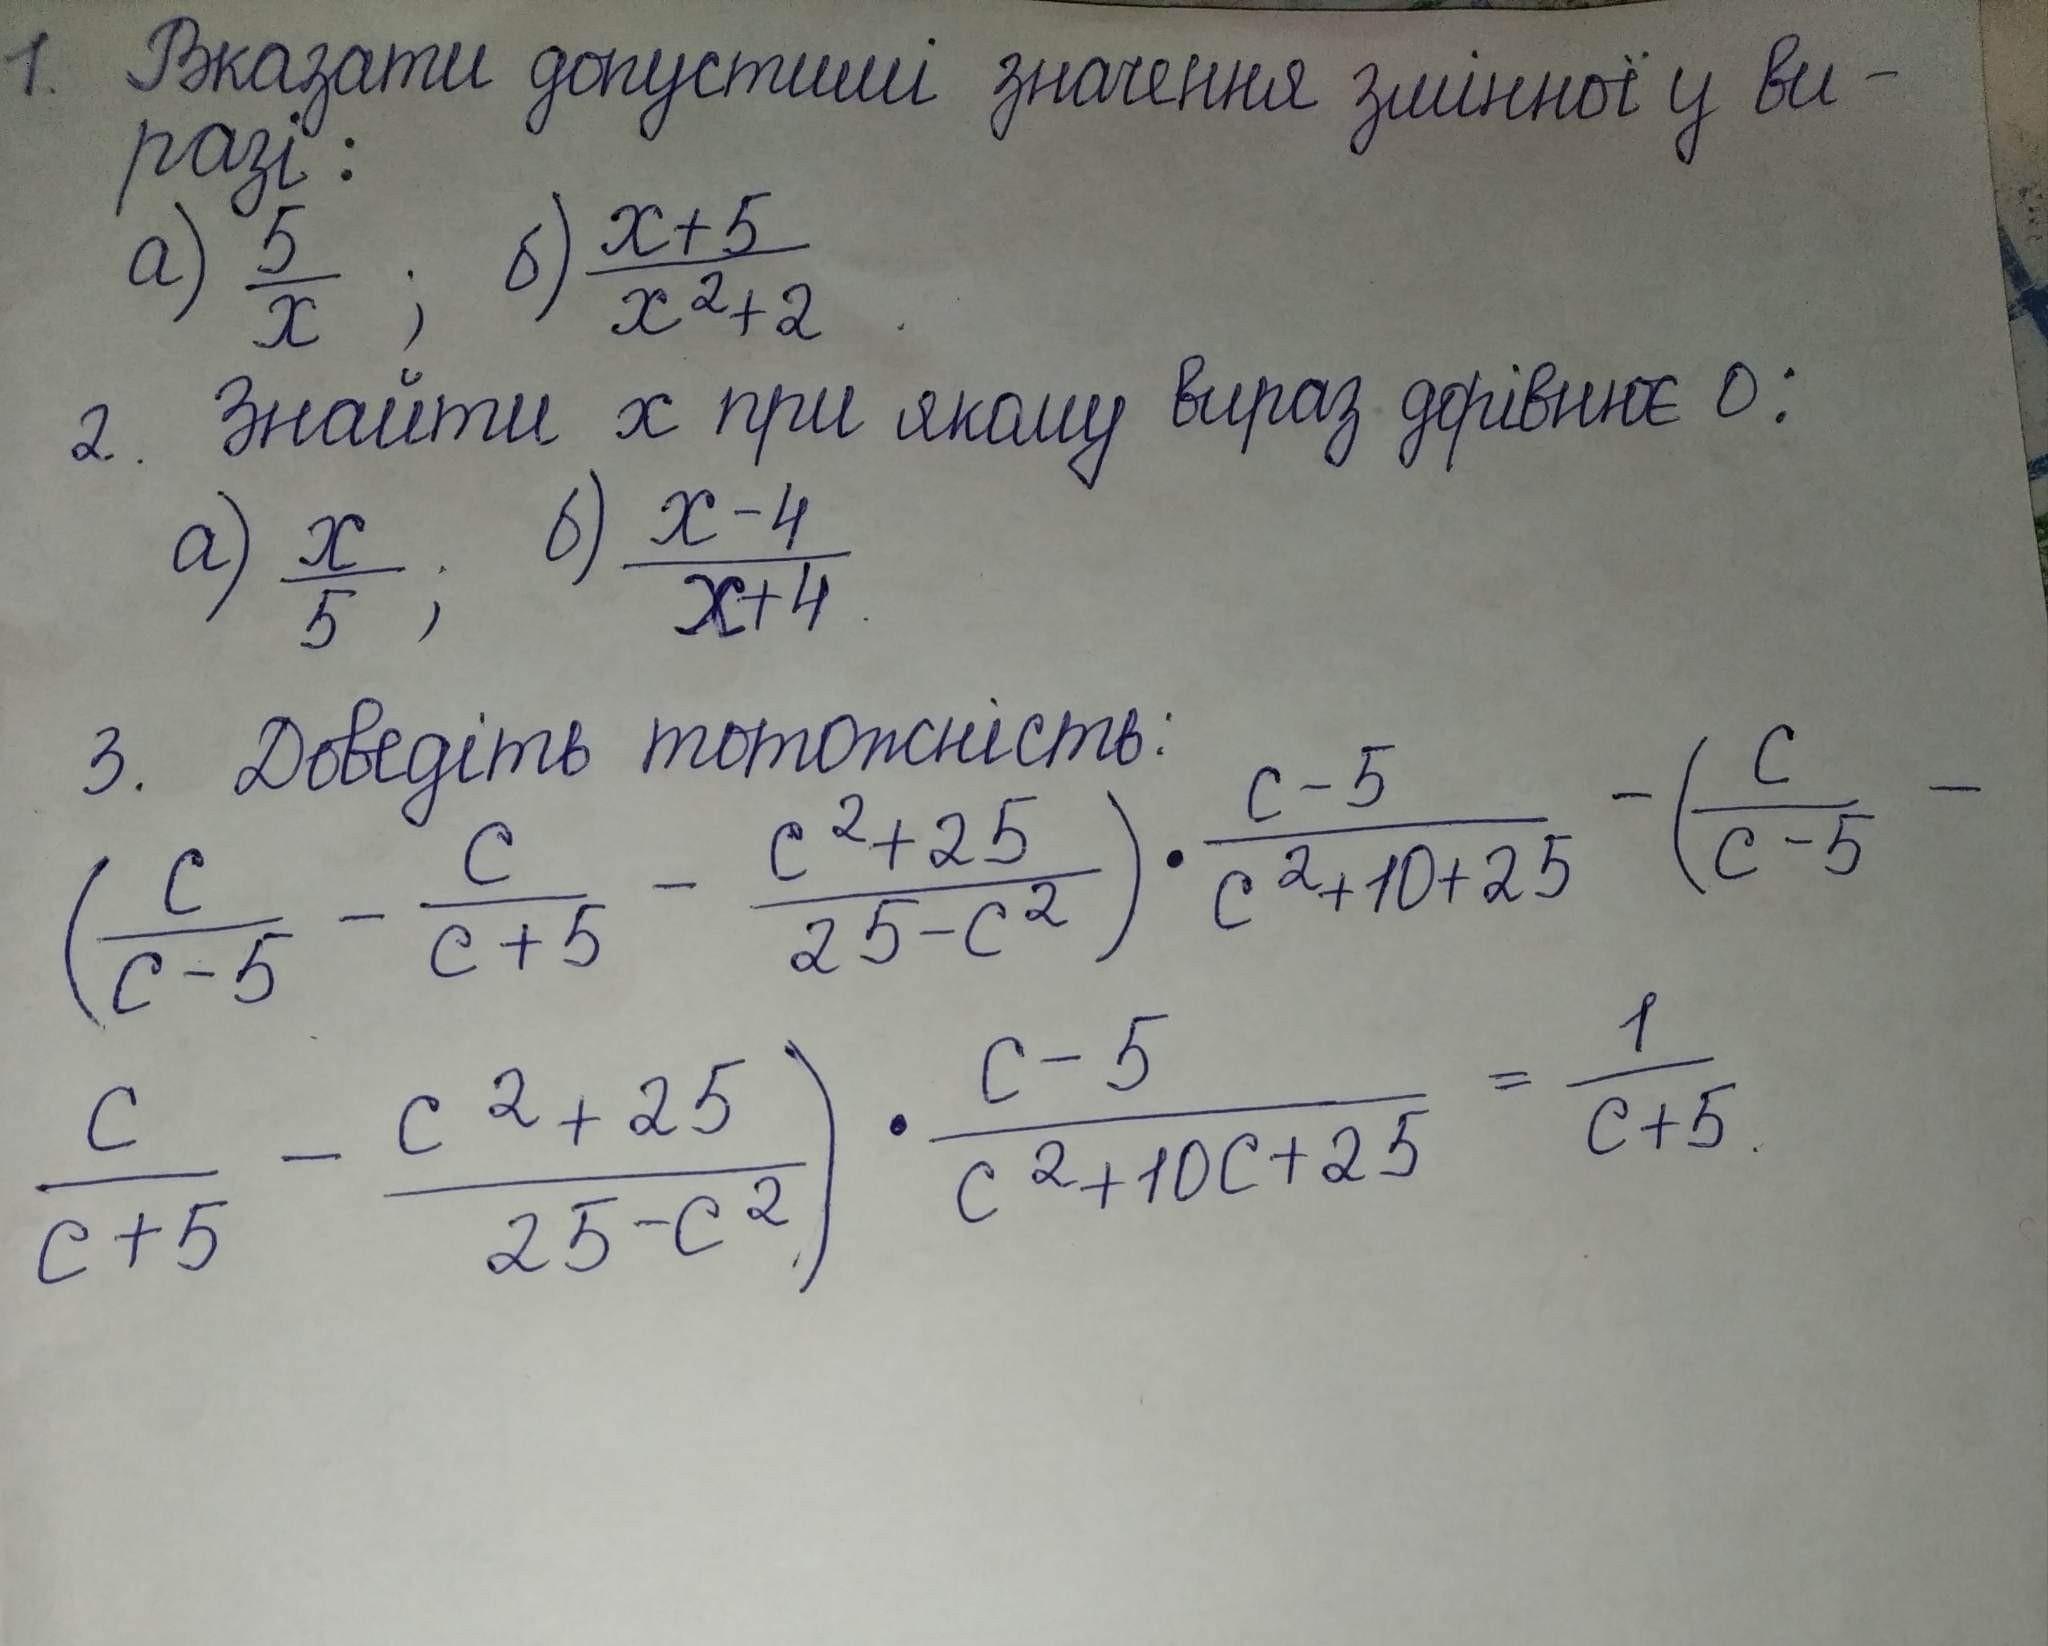 1. Вказати допустимі значення змінної у ви-
разі:
а) 5/x ; б) (x+5)/(x²+2).
2. Знайти x при якому вираз дорівнює 0:
а) x/5 ; б) (x-4)/(x+4).
3. Доведіть тотожність:
(c/(c-5) - c/(c+5) - (c²+25)/(25-c²)) · (c-5)/(c²+10+25) - (c/(c-5) -
c/(c+5) - (c²+25)/(25-c²)) · (c-5)/(c²+10c+25) = 1/(c+5).